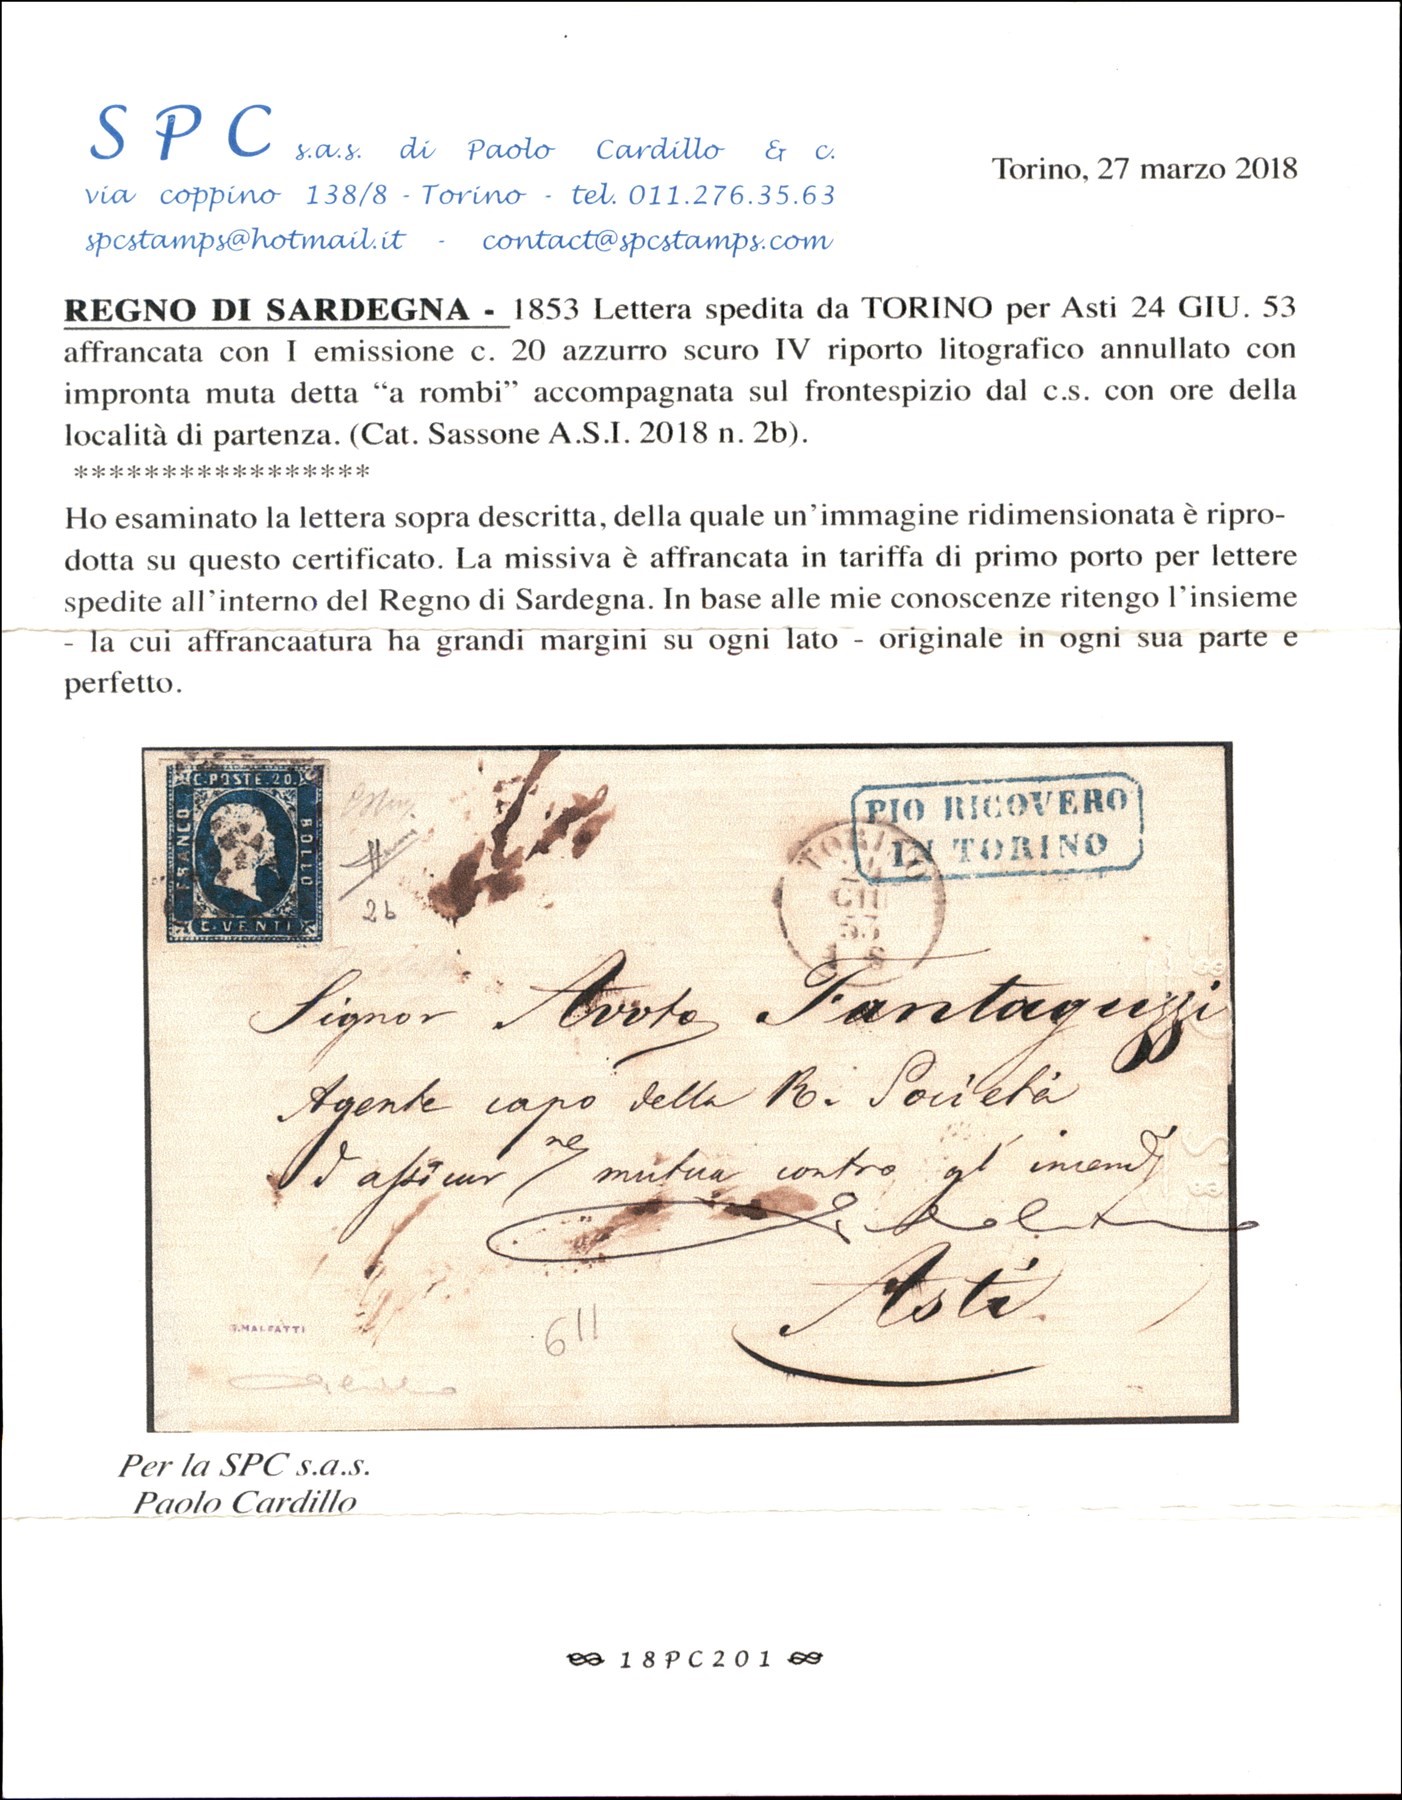 SPC s.a.s. di Paolo Cardillo & c.
via coppino 138/8 - Torino - tel. 011.276.35.63
spcstamps@hotmail.it - contact@spcstamps.com
Torino, 27 marzo 2018
REGNO DI SARDEGNA - 1853 Lettera spedita da TORINO per Asti 24 GIU. 53
affrancata con I emissione c. 20 azzurro scuro IV riporto litografico annullato con
impronta muta detta “a rombi” accompagnata sul frontespizio dal c.s. con ore della
località di partenza. (Cat. Sassone A.S.I. 2018 n. 2b).
*****************
Ho esaminato la lettera sopra descritta, della quale un’immagine ridimensionata è ripro-
dotta su questo certificato. La missiva è affrancata in tariffa di primo porto per lettere
spedite all’interno del Regno di Sardegna. In base alle mie conoscenze ritengo l’insieme
- la cui affrancaatura ha grandi margini su ogni lato - originale in ogni sua parte e
perfetto.
C.POSTE.20.
FRANCO
BOLLO
C.VENTI
2b
PIO RICOVERO
IN TORINO
TORINO
GIU
53
Signor Avvto Fantaguzzi
Agente capo della R. Società
d'assicurne mutua contro gl'incendj
Asti
611
G.MALFATTI
Per la SPC s.a.s.
Paolo Cardillo
18PC201